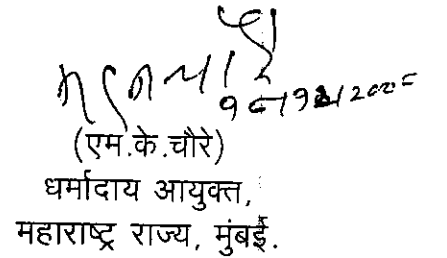 (एम.के.चौरे)
धर्मादाय आयुक्त,
महाराष्ट्र राज्य, मुंबई.